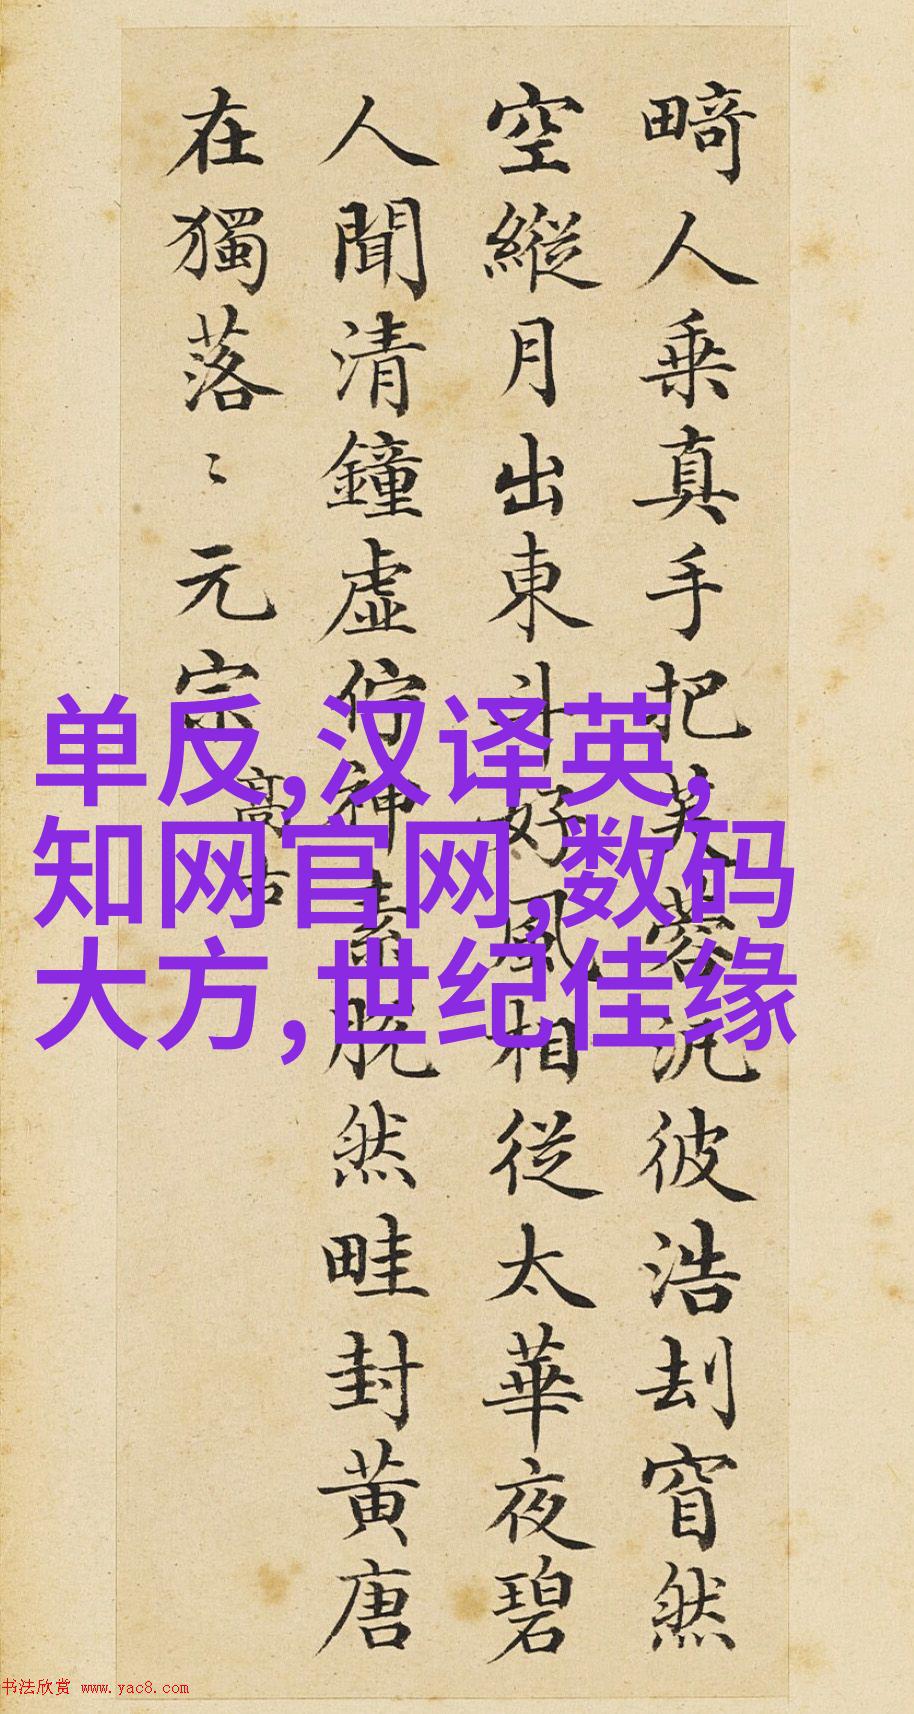 畸人乗真手把芙蓉汎彼浩刦窅然
空縱月出東斗好風相從太華夜碧
人聞清鐘虚佇神素脱然畦封黄唐
在獨落〻元宗
高古
单反,汉译英,
知网官网,数码
大方,世纪佳缘
书法欣赏 www.yac8.com